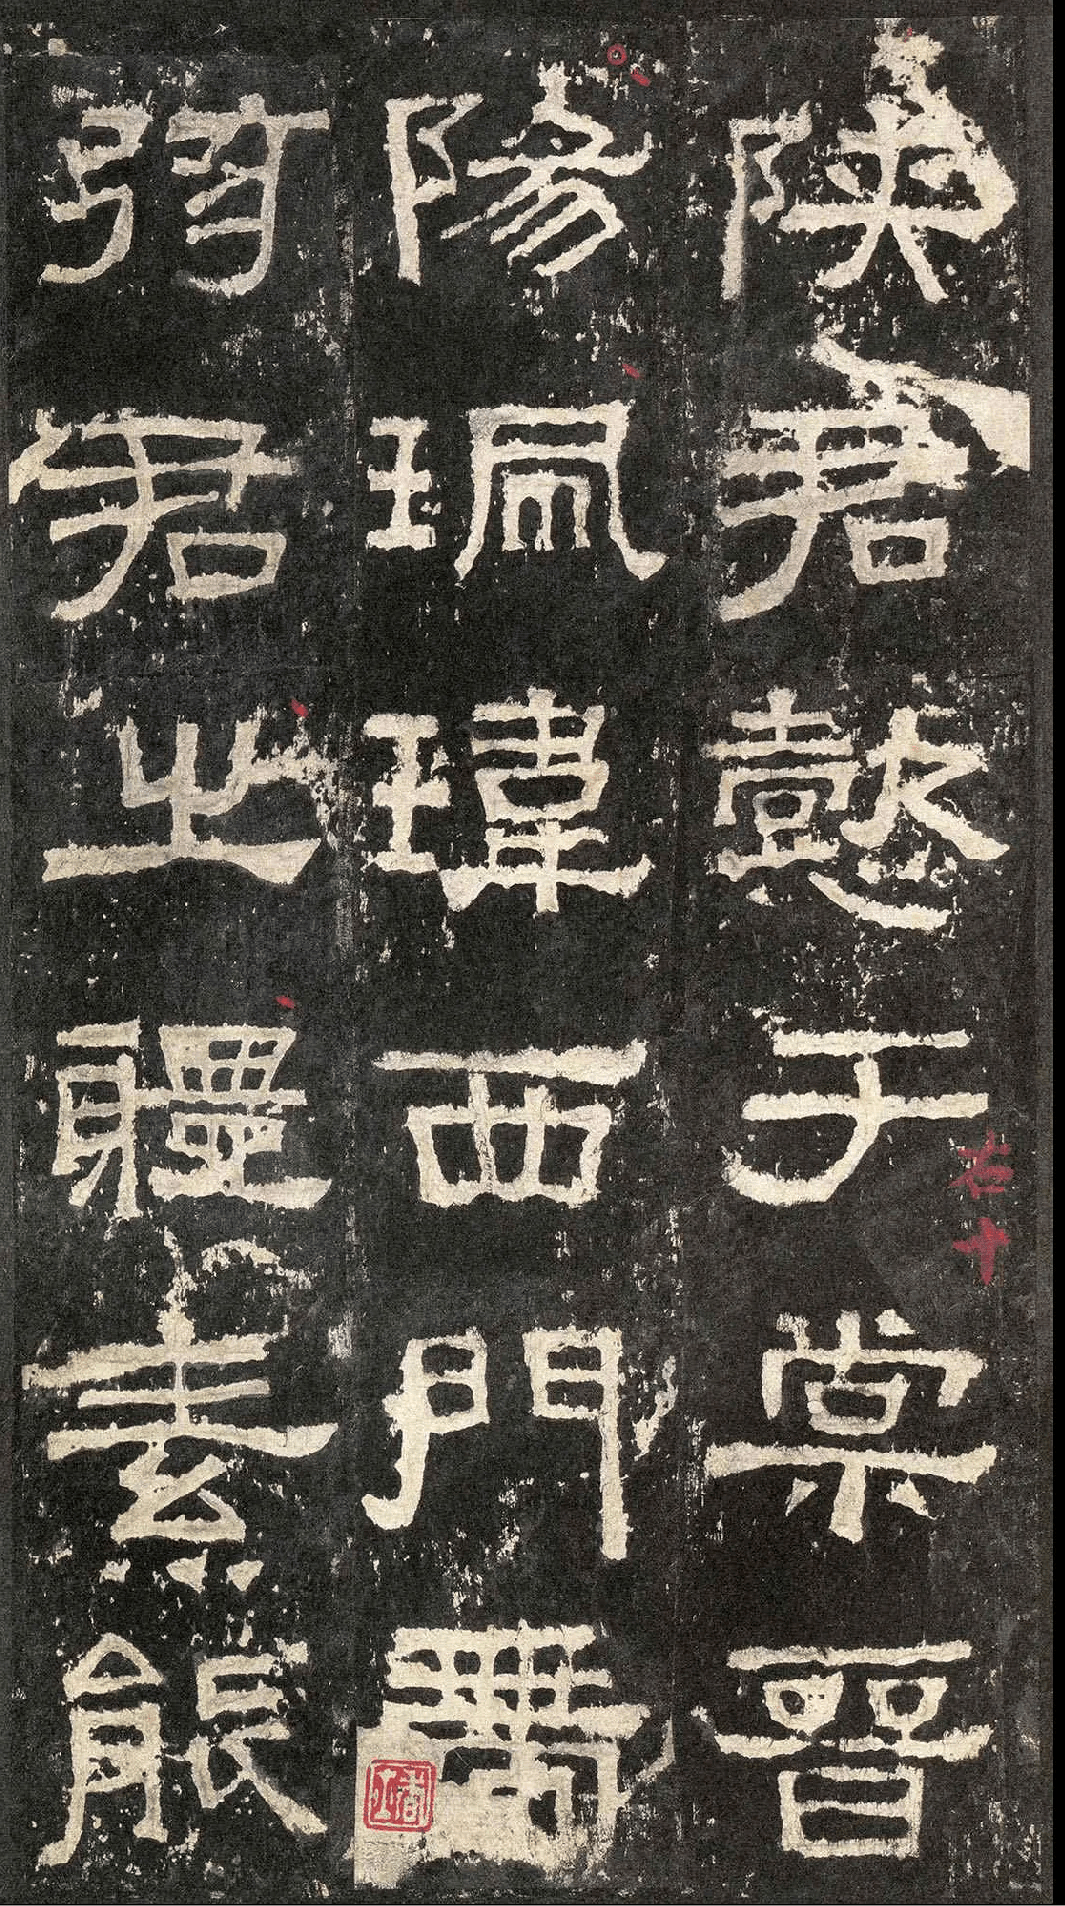 陝君懿于棠晉
陽珮瑋西門帶
弦君之體素能
右十